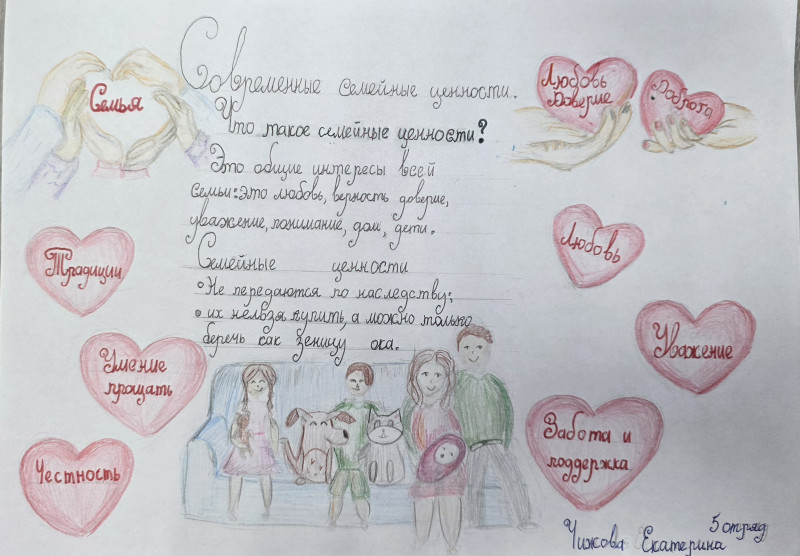 Современные семейные ценности.
Что такое семейные ценности?
Это общие интересы всей
семьи: это любовь, верность доверие,
уважение, понимание, дом, дети.
Семейные ценности
Не передаются по наследству;
их нельзя купить, а можно только
беречь как зеницу ока.
Семья
Традиции
Умение
прощать
Честность
Любовь
Доверие
Доброта
Любовь
Уважение
Забота и
поддержка
5 отряд
Чижова Екатерина